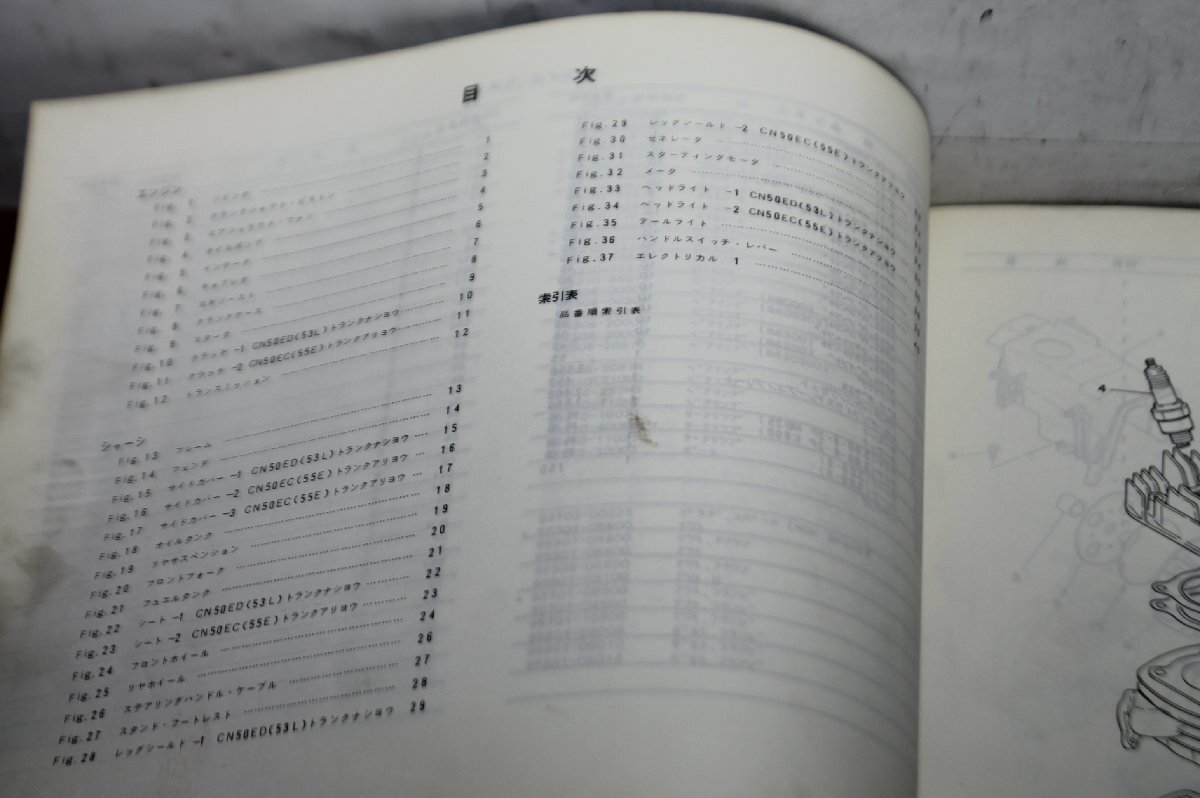 目 次
エンジン
Fig. 1 シリンダ 1
Fig. 2 クランクシャフト・ピストン 2
Fig. 3 エアシュラウド・ファン 3
Fig. 4 オイルポンプ 4
Fig. 5 インテーク 5
Fig. 6 キャブレタ 6
Fig. 7 エキゾースト 7
Fig. 8 クランクケース 8
Fig. 9 スタータ 9
Fig. 10 クラッチ -1 CN50ED(53L)トランクナシヨウ 10
Fig. 11 クラッチ -2 CN50EC(55E)トランクアリヨウ 11
Fig. 12 トランスミッション 12
シャーシ
Fig. 13 フレーム 13
Fig. 14 フェンダ 14
Fig. 15 サイドカバー -1 CN50ED(53L)トランクナシヨウ 15
Fig. 16 サイドカバー -2 CN50EC(55E)トランクアリヨウ 16
Fig. 17 サイドカバー -3 CN50EC(55E)トランクアリヨウ 17
Fig. 18 オイルタンク 18
Fig. 19 リヤサスペンション 19
Fig. 20 フロントフォーク 20
Fig. 21 フュエルタンク 21
Fig. 22 シート -1 CN50ED(53L)トランクナシヨウ 22
Fig. 23 シート -2 CN50EC(55E)トランクアリヨウ 23
Fig. 24 フロントホイール 24
Fig. 25 リヤホイール 26
Fig. 26 ステアリングハンドル・ケーブル 27
Fig. 27 スタンド・フートレスト 28
Fig. 28 レッグシールド -1 CN50ED(53L)トランクナシヨウ 29
Fig. 29 レッグシールド -2 CN50EC(55E)トランクアリヨウ
Fig. 30 ゼネレータ
Fig. 31 スターティングモータ
Fig. 32 メータ
Fig. 33 ヘッドライト -1 CN50ED(53L)トランクナシヨウ
Fig. 34 ヘッドライト -2 CN50EC(55E)トランクアリヨウ
Fig. 35 テールライト
Fig. 36 ハンドルスイッチ・レバー
Fig. 37 エレクトリカル 1
索引表
品番順索引表
4